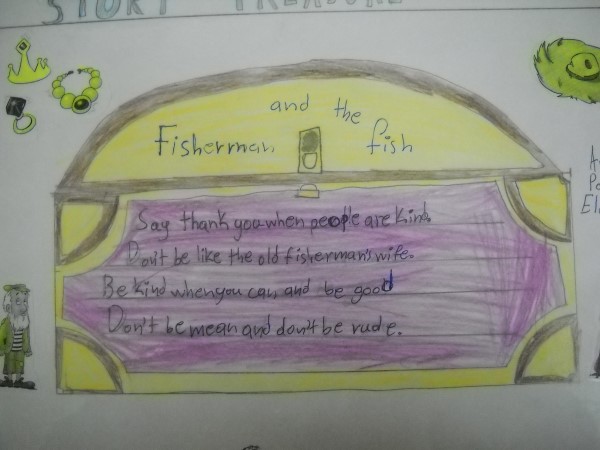 STORY TREASURE
Fisherman and the fish
Say thank you when people are kind.
Don't be like the old fisherman's wife.
Be kind when you can and be good
Don't be mean and don't be rude.